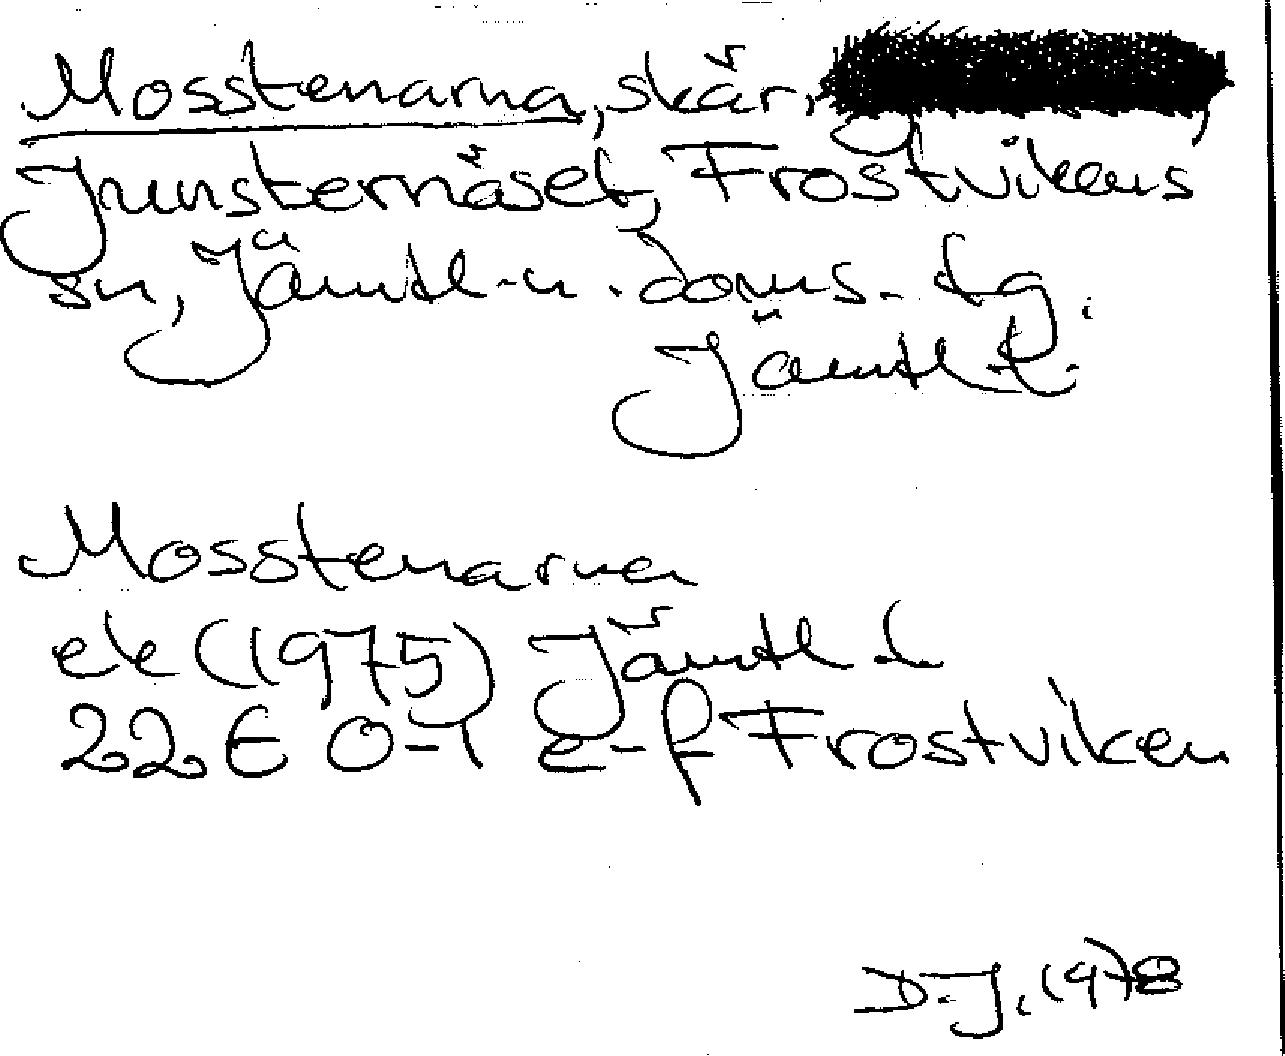 Mosstenarna, skär,
Junsternäset, Frostvikens
sn, Jämtl. n. doms. tg.
Jämtl l.
Mosstenarna
ek (1975) Jämtl l
22E 0-1 e-f Frostviken
D.J. 1978